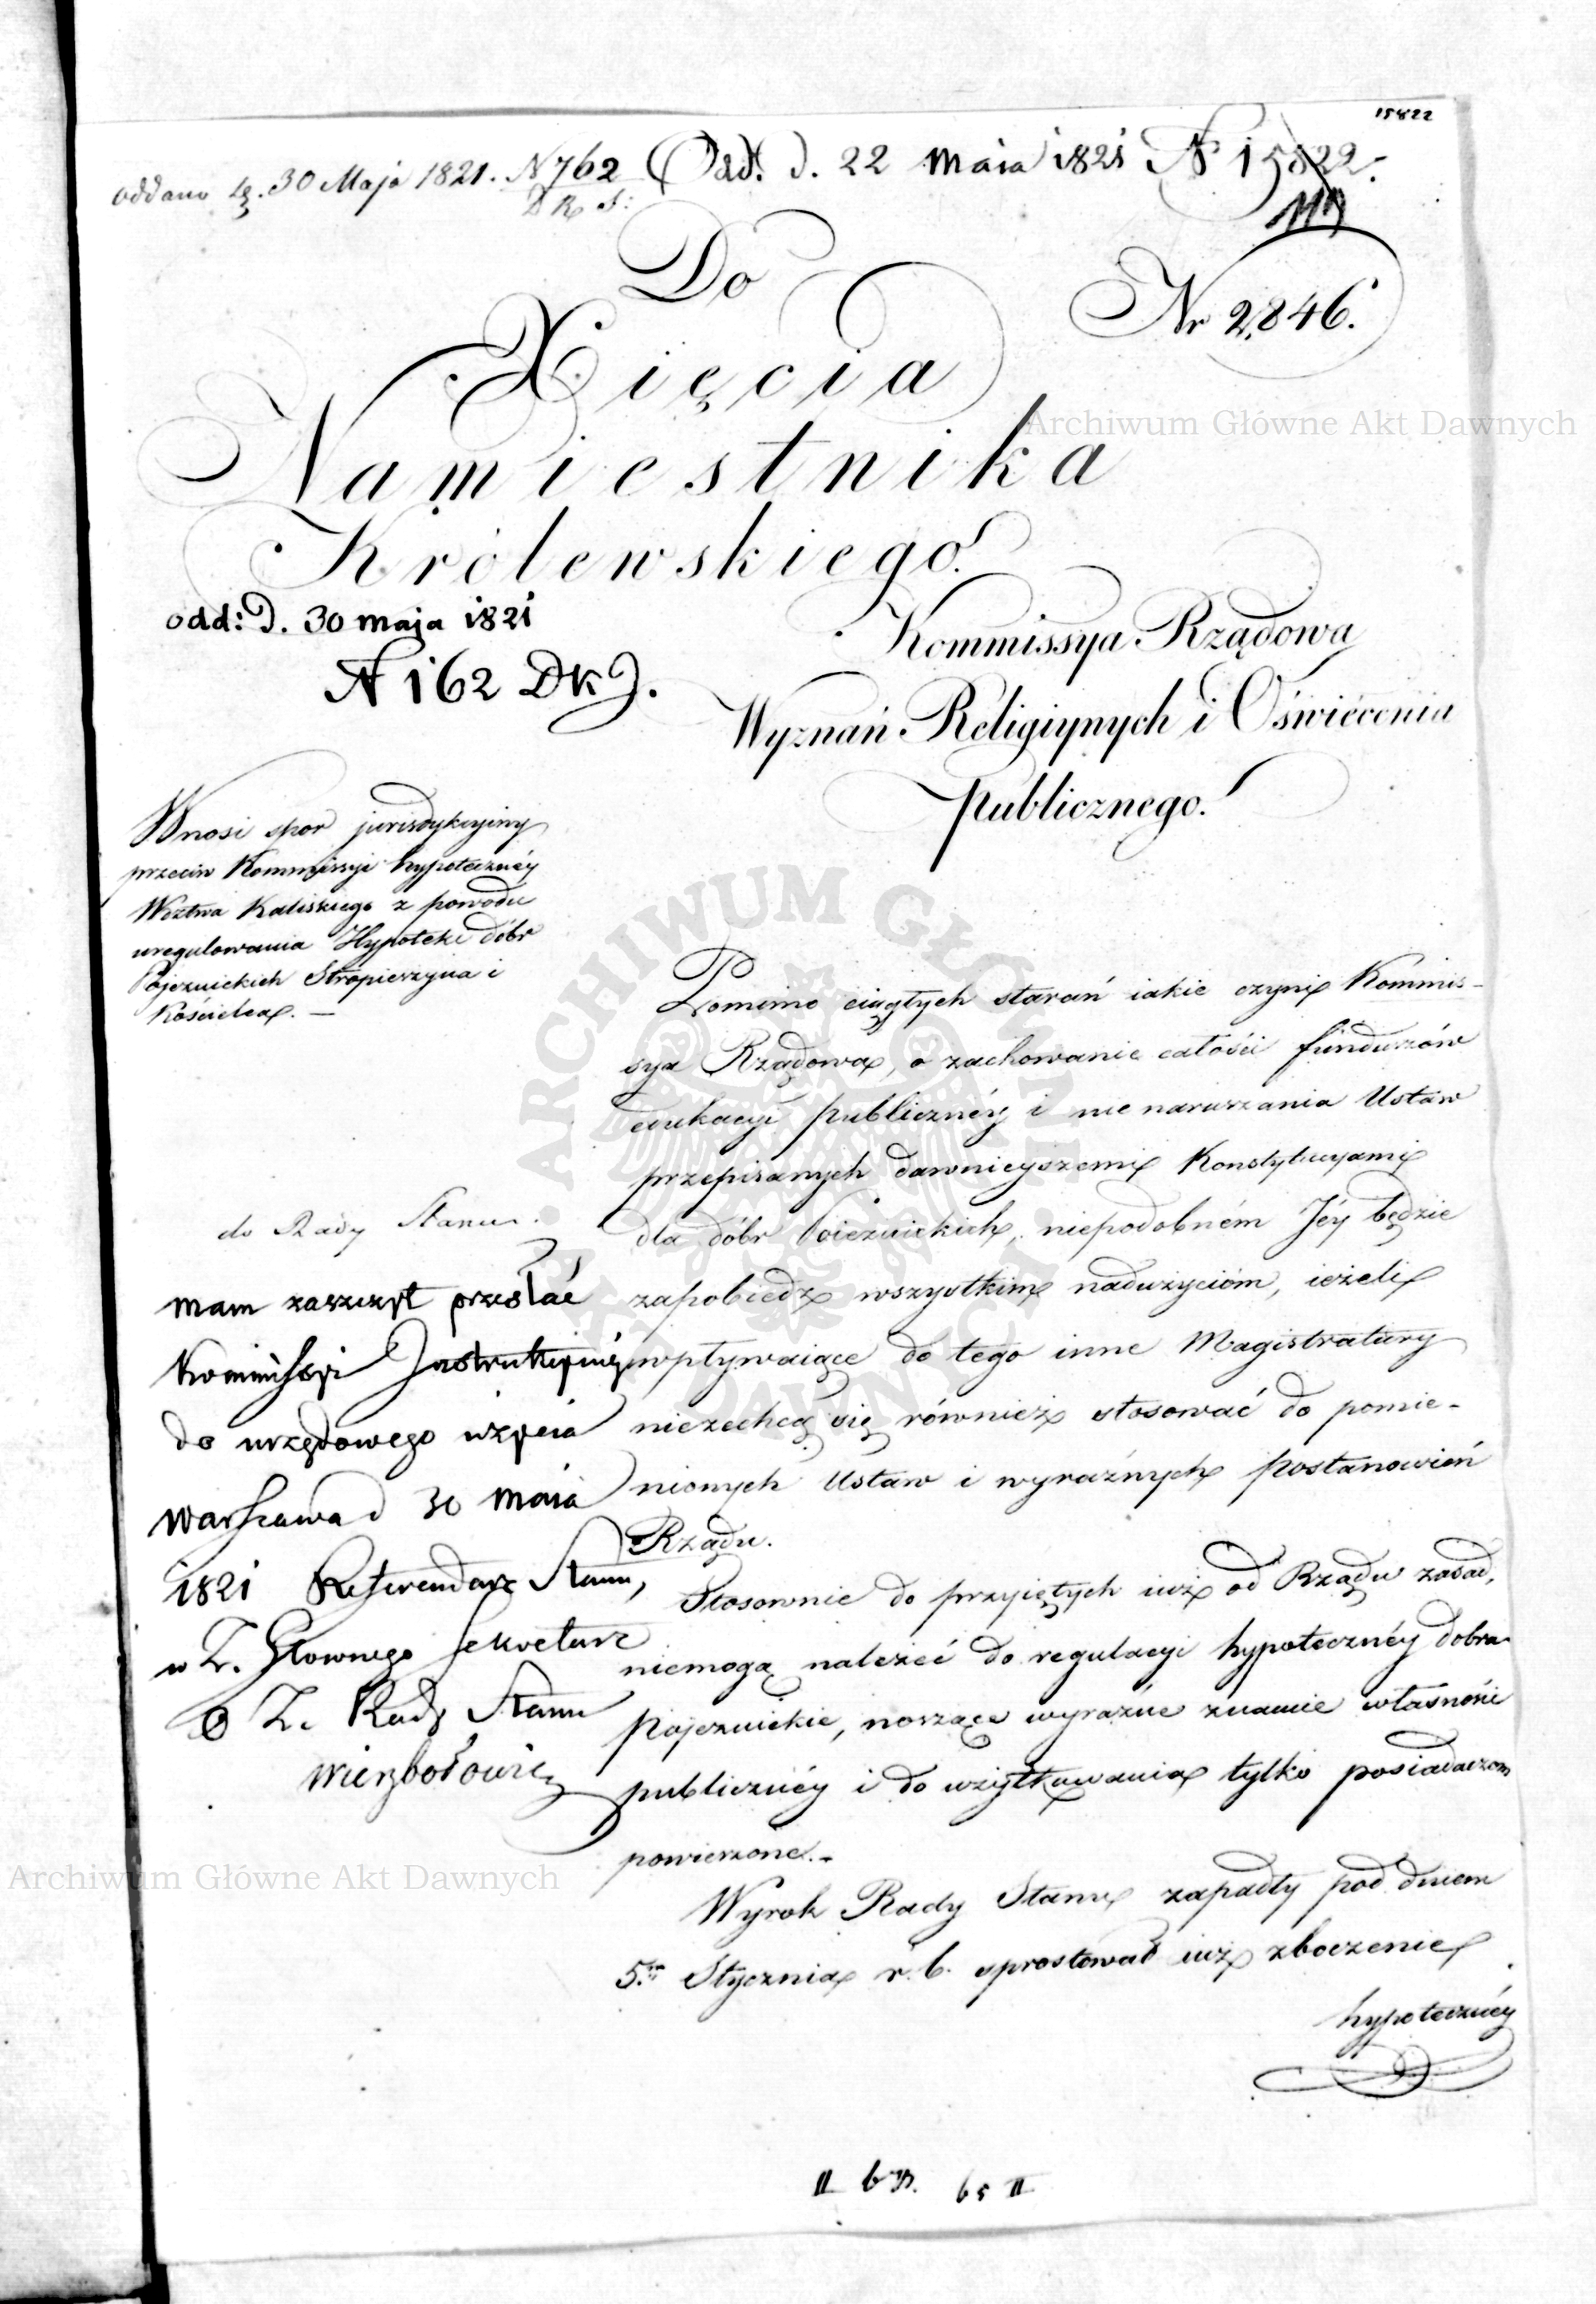 15822
oddano d. 30 Maja 1821. N 762
D R S:
Odd. d. 22 Maia 1821 N 15822.
Nr 2,846.
Do
Xięcia
Namiestnika
Królewskiego.
odd: d. 30 maja 1821
N 162 DKJ.
Kommissya Rządowa
Wyznań Religiynych i Oświecenia
Publicznego.
Wnosi spor jurisdykcyiny
przeciw Kommissyi hypoteczney
Wdztwa Kaliskiego z powodu
uregulowania Hypoteki dóbr
Pojezuickich Stropieszyna i
Kościelca. —
do Rady Stanu.
mam zaszczyt przesłać
Kommissyi Instrukcyiney
do urzędowego użycia
Warszawa d 30 maia
1821 Referendarz Stanu,
w Z. Głownego Sekretarz
Z. Rady Stanu
Wierzbołowicz
Pomimo ciągłych starań iakie czyni Kommis-
sya Rządowa, o zachowanie całości funduszów
edukacyi publicznéy i nie naruszania Ustaw
przepisanych dawnieyszemi Konstytucyami
dla dóbr Poiezuickich, niepodobném Jéy będzie
zapobiedz wszystkim nadużycióm, ieżeli
wpływaiące do tego inne Magistratury
niezechcą się również stosować do pomie-
nionych Ustaw i wyraźnych postanowień
Rządu.
Stosownie do przyiętych iuż od Rządu zasad,
niemogą należeć do regulacyi hypotecznéy dobra
pojezuickie, noszące wyraźne znamie własności
publicznéy i do użytkowania tylko posiadaczom
powierzone.-
Wyrok Rady Stanu zapadły pod dniem
5. Stycznia r. b. sprostował iuż zboczenie
hypotecznéy
Archiwum Główne Akt Dawnych
Archiwum Główne Akt Dawnych
ARCHIWUM GŁÓWNE AKT DAWNYCH